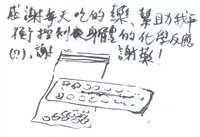 感謝每天吃的藥、幫助我平
衡控制我身體的化學反應
(?!)、謝謝藥!